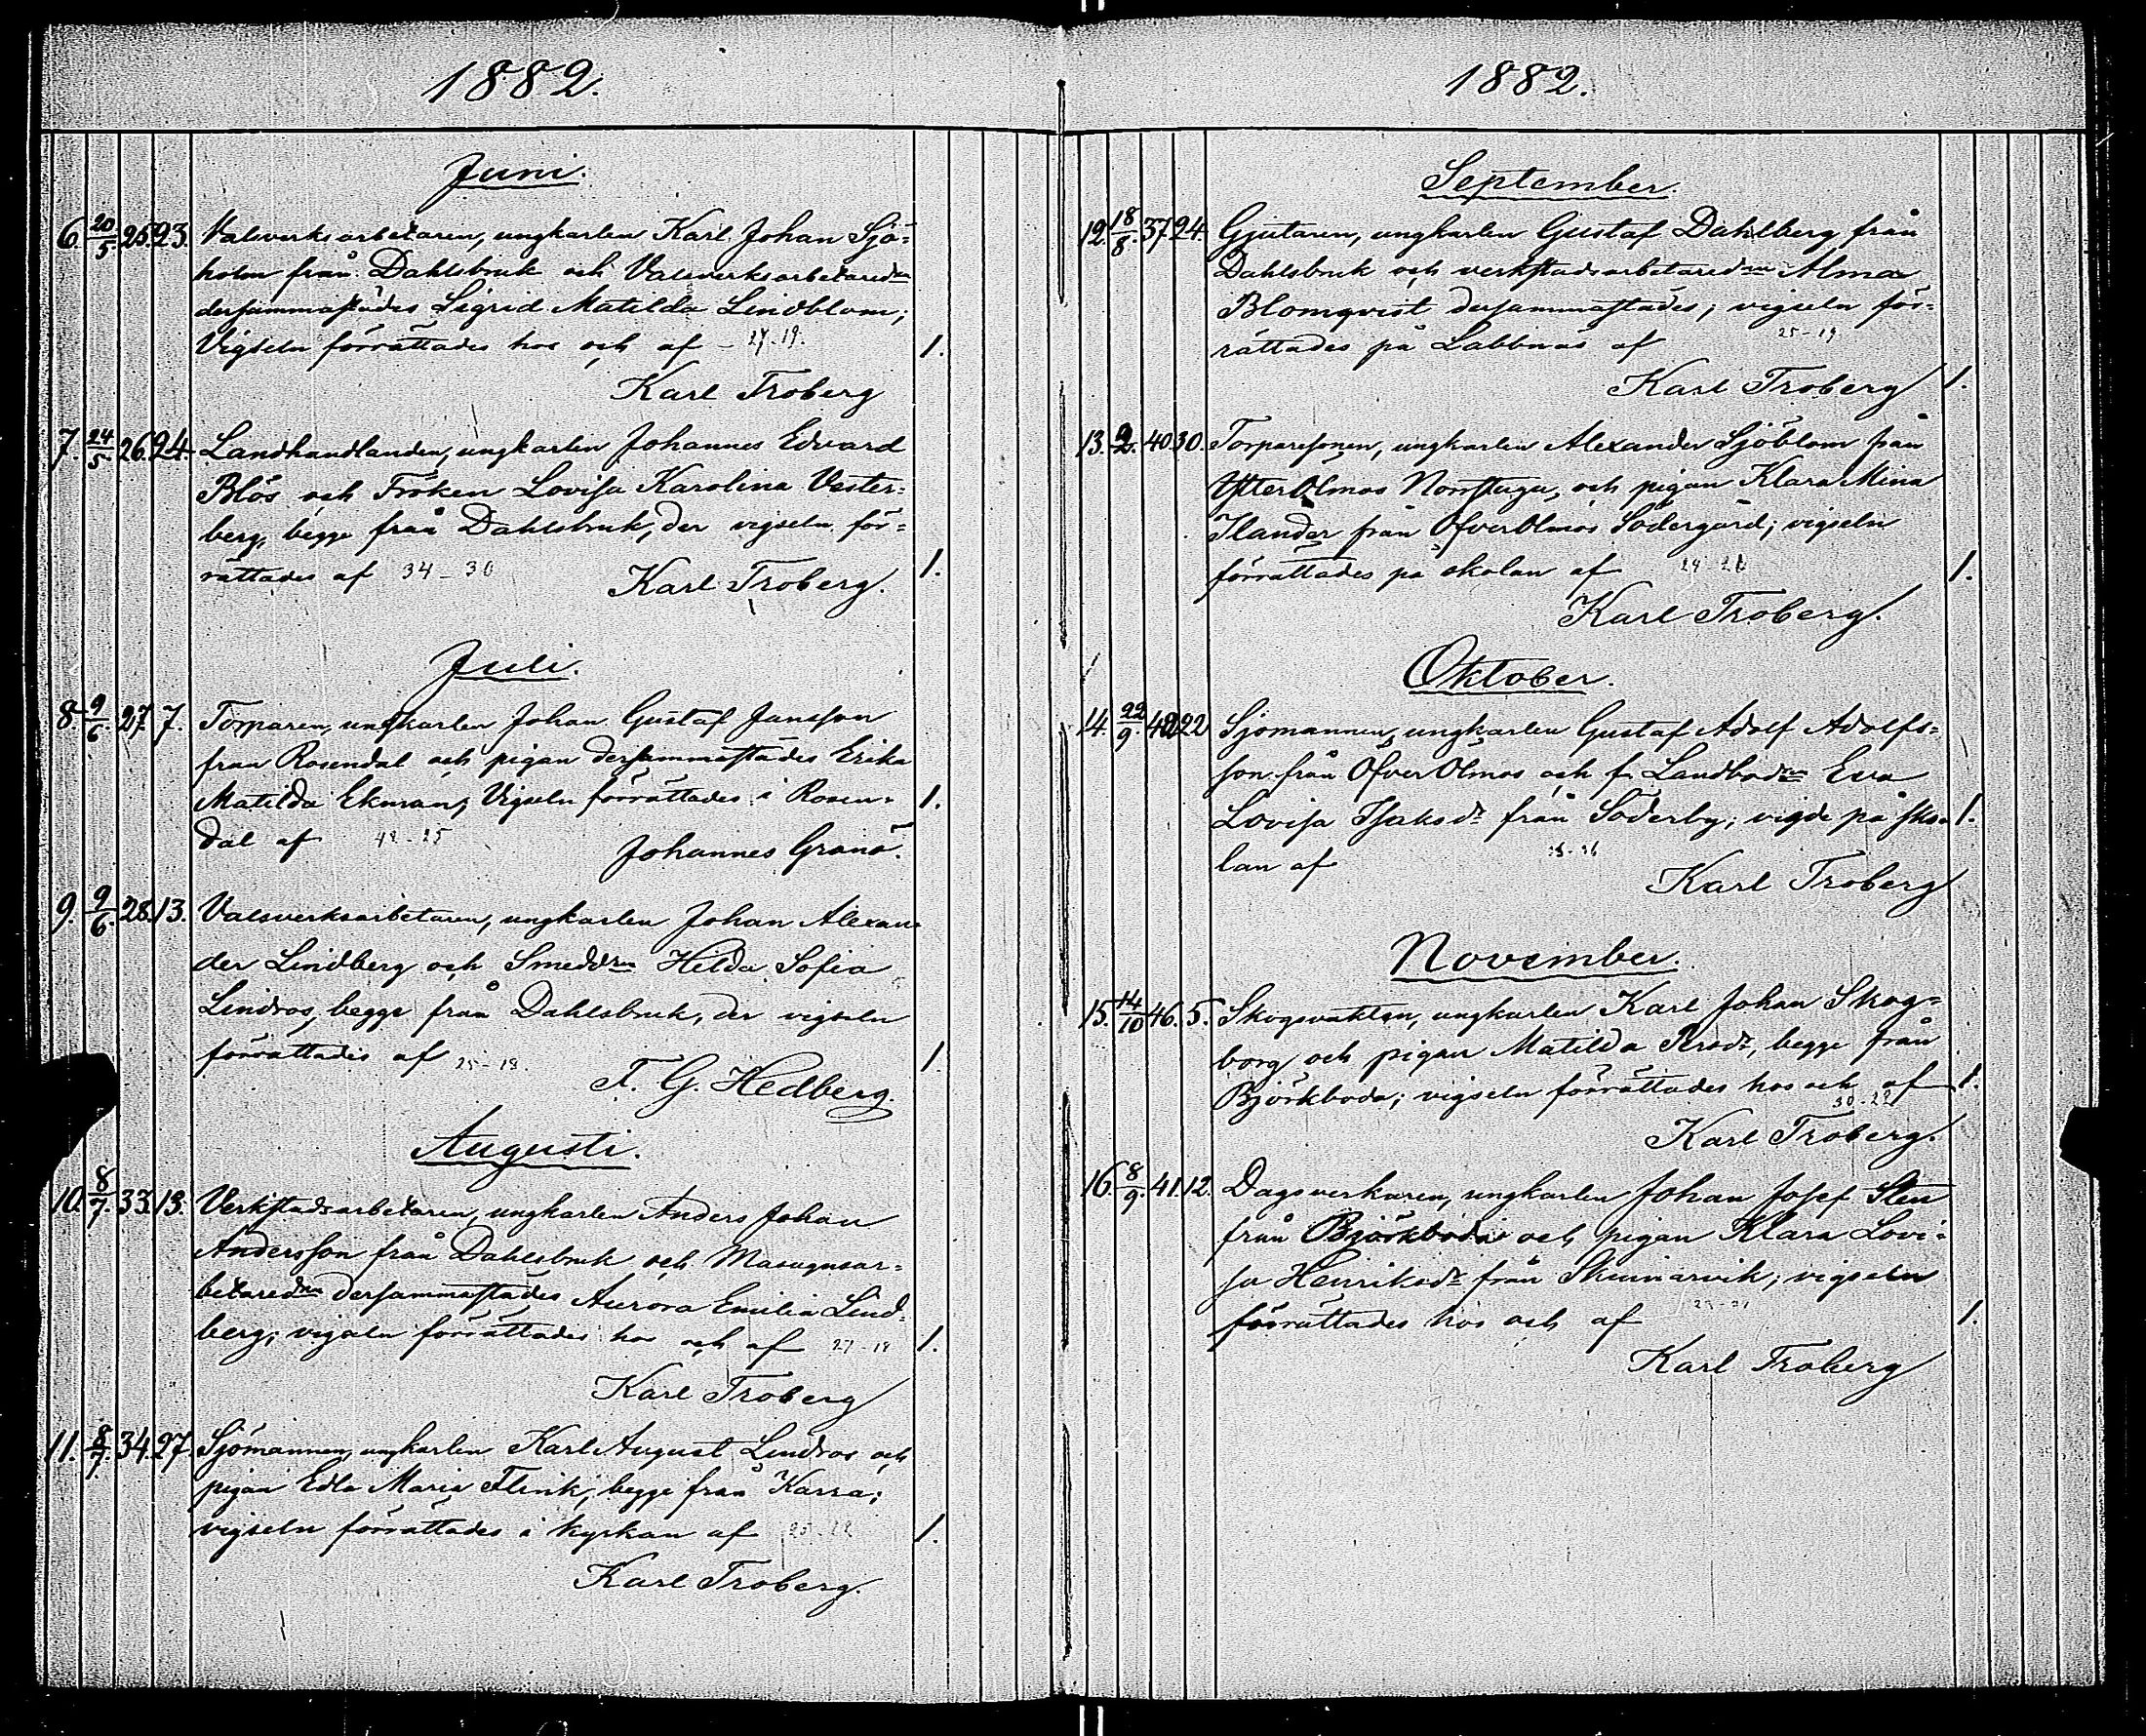 1882.
Juni.
6. 20/5. 25. 23. Valsverksarbetaren, ungkarlen Karl Johan Sjö=
holm från Dahlsbruk och Valsverksarbetaredrn
dersammastädes Sigrid Matilda Lindblom;
Vigseln förrättades hos och af - 27-19. 1.
Karl Troberg
7. 24/5 26. 24. Landhandlanden, ungkarlen Johannes Edvard
Blös och Fröken Lovisa Karolina Vester=
berg, begge från Dahlsbruk, der vigseln för=
rättades af 34-30 1.
Karl Troberg.
Juli.
8. 9/6. 27. 7. Torparen, ungkarlen Johan Gustaf Jansson
från Rosendal och pigan dersammastädes Erika
Matilda Ekman; Vigseln förrättades i Rosen= 1.
dal af 42-25
Johannes Granö.
9. 9/6. 28. 13. Valsverksarbetaren, ungkarlen Johan Alexan=
der Lindberg och Smeddrn Hilda Sofia
Lindros, begge från Dahlsbruk, der vigseln
förrättades af 25-18. 1.
F. G. Hedberg.
Augusti.
10. 8/7. 33. 13. Verkstadsarbetaren, ungkarlen Anders Johan
Andersson från Dahlsbruk och Masugnsar=
betaredrn dersammastädes Aurora Emilia Lind=
berg; vigseln förrättades hos och af 27-18 1.
Karl Troberg
11. 8/7. 34. 27. Sjömannen, ungkarlen Karl August Lindros och
pigan Edla Maria Flink, begge från Karra;
vigseln förrättades i kyrkan af 1.
Karl Troberg.
1882.
September.
12. 18/8. 37. 24. Gjutaren, ungkarlen Gustaf Dahlberg från
Dahlsbruk och verkstadsarbetaredrn Alma
Blomqvist dersammastädes; vigseln för=
rättades på Labbnäs af 25-19
Karl Troberg 1.
13. 40. 30. Torparesonen, ungkarlen Alexander Sjöblom från
YtterÖlmos Norrstuga, och pigan Klara Mina
Ilander från ÖfverÖlmos Södergård; vigseln
förrättades på skolan af 1.
Karl Troberg.
Oktober.
14. 22/9. 42. 22 Sjömannen, ungkarlen Gustaf Adolf Adolfs=
son från ÖfverÖlmos och f. Landbodrn Eva
Lovisa Isaksdr från Söderby; vigde på sko= 1.
lan af
Karl Troberg
November.
15. 14/10 46. 5. Skogsvakten, ungkarlen Karl Johan Skog=
borg och pigan Matilda Persdr, begge från
Björkboda; vigseln förrättades hos och af 1.
30-22
Karl Troberg.
16. 8/9. 41. 12. Dagsverkaren, ungkarlen Johan Josef Sten
från Björkboda och pigan Klara Lovi=
sa Henriksdr från Skinnarvik; vigseln
förrättades hos och af 1.
Karl Troberg